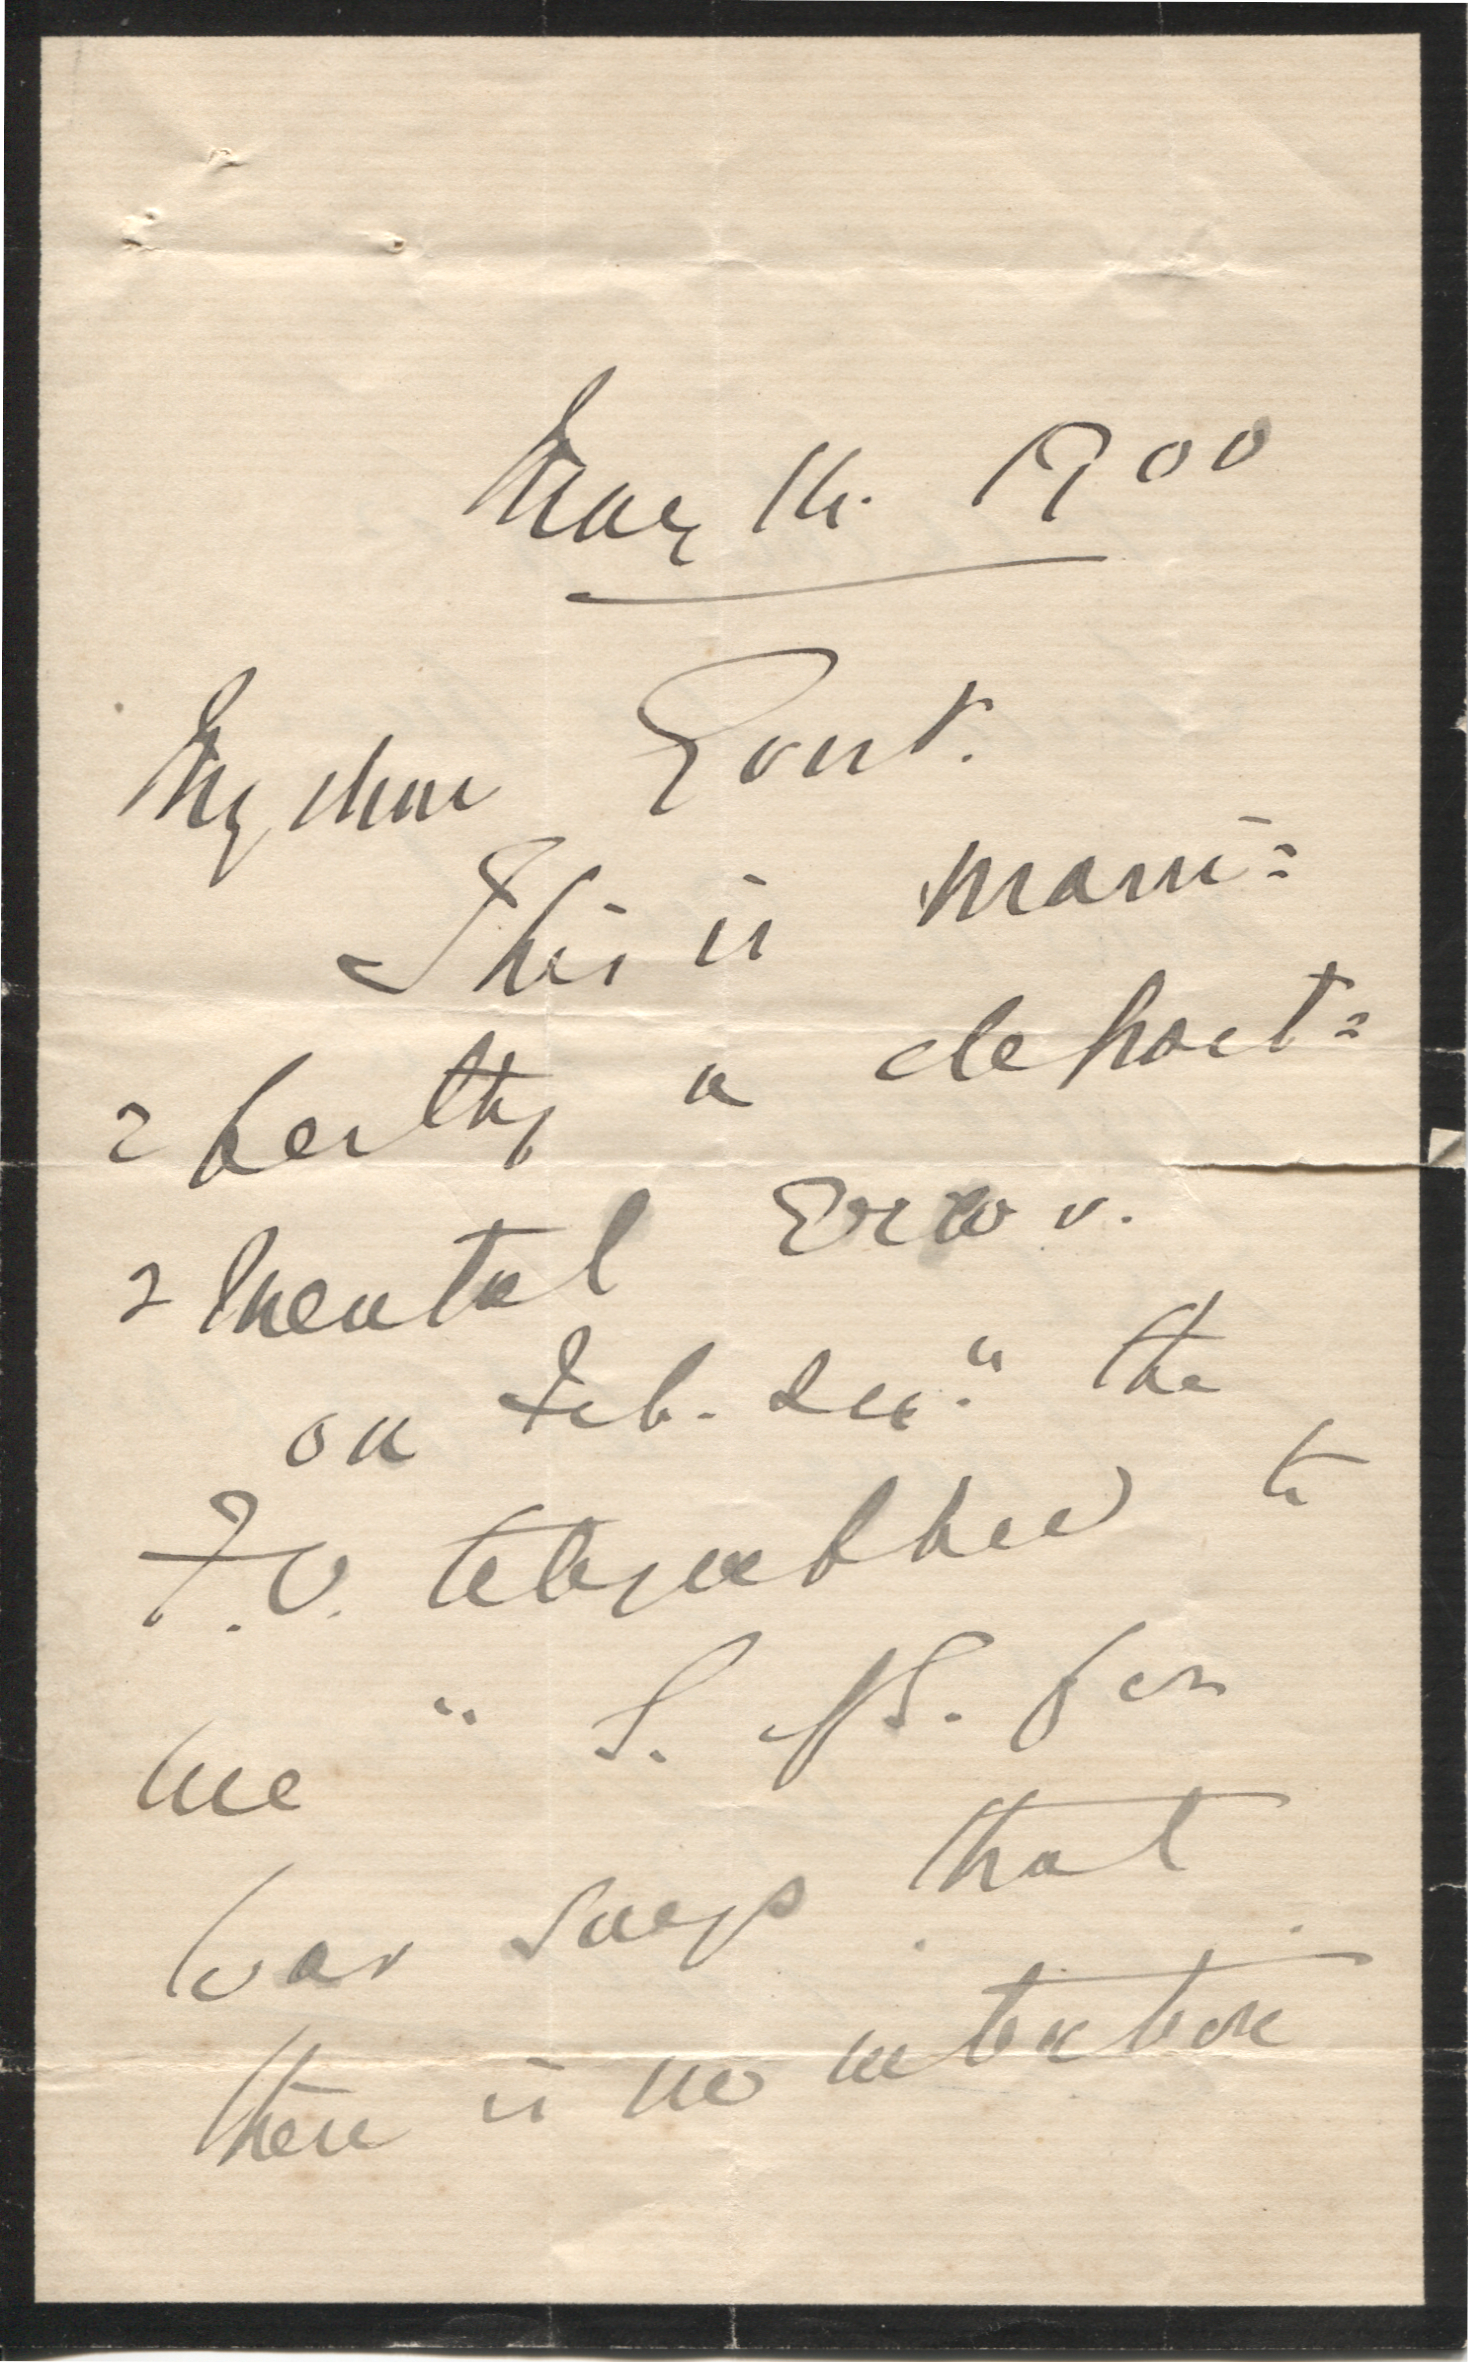 May 1900
My dear Gorst.
This is mani=
=festly a depart=
=mental error.
on Feb. the
F.O. telegraphed to
me " S. of S. for
War says that
there is no intention